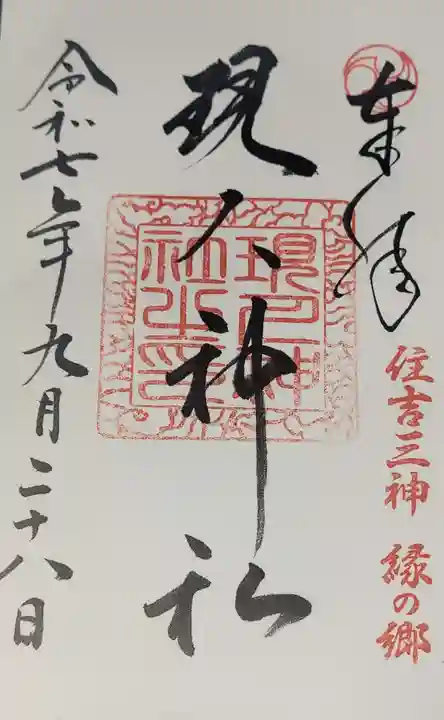 奉拝
住吉三神 縁の郷
現人神社
現人神社之印
令和七年九月二十八日